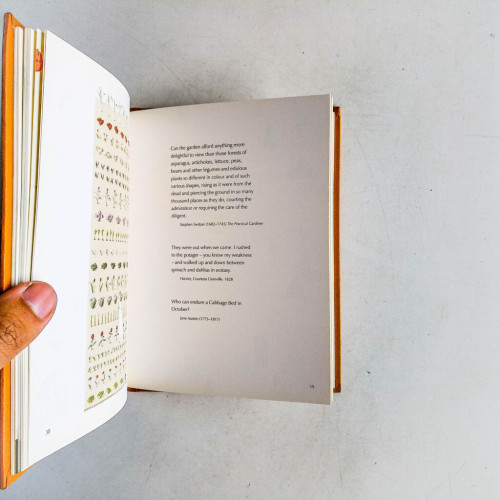 Can the garden afford anything more
delightful to view than those forests of
asparagus, artichokes, lettuce, peas,
beans and other legumes and edulous
plants so different in colour and of such
various shapes, rising as it were from the
dead and piercing the ground in so many
thousand places as they do, courting the
admiration or requiring the care of the
diligent.
Stephen Switzer (1682–1745) The Practical Gardiner
They were out when we came. I rushed
to the potager – you know my weakness
– and walked up and down between
spinach and dahlias in ecstasy.
Harriet, Countess Granville, 1828
Who can endure a Cabbage Bed in
October?
Jane Austen (1775–1817)